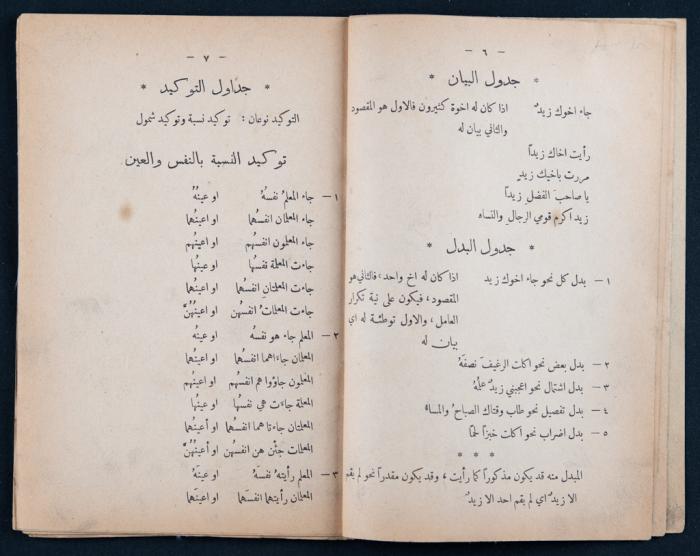 — ٦ —
* جدول البيان *
جاء اخوك زيدٌ اذا كان له اخوة كثيرون فالاول هو المقصود
والثاني بيان له
رأيت اخاك زيدًا
مررت باخيك زيدٍ
يا صاحبَ الفضلِ زيدًا
زيد اكرم قومي الرجالِ والنساء
* جدول البدل *
١ — بدل كل نحو جاء اخوك زيد اذا كان له اخ واحد، فالثاني هو
المقصود، فيكون على نية تكرار
العامل، والاول توطئة له اي
بيان له
٢ — بدل بعض نحو اكلت الرغيفَ نصفَهُ
٣ — بدل اشتمال نحو اعجبني زيدٌ علمُهُ
٤ — بدل تفصيل نحو طاب وقتاك الصباحُ والمساءُ
٥ — بدل اضراب نحو اكلت خبزًا لحمًا
* * *
المبدل منه قد يكون مذكورًا كما رأيت، وقد يكون مقدرًا نحو لم يقم
الا زيدٌ اي لم يقم احد الا زيدٌ
— ٧ —
* جداول التوكيد *
التوكيد نوعان: توكيد نسبة وتوكيد شمول
توكيد النسبة بالنفس والعين
١ — جاء المعلمُ نفسُهُ او عينُهُ
جاء المعلمان انفسُهما او اعينُهما
جاء المعلمون انفسُهم او اعينُهم
جاءت المعلمة نفسُها او عينُها
جاءت المعلمتانِ انفسُهما او اعينُهما
جاءت المعلماتُ انفسُهن او اعينُهُنَّ
٢ — المعلم جاء هو نفسُهُ او عينُهُ
المعلمان جاءا هما انفسُهما او اعينُهما
المعلمون جاؤوا هم انفسُهم او اعينُهم
المعلمة جاءت هي نفسُها او عينُها
المعلمتان جاءتا هما انفسُهما او أعينُهما
المعلمات جئن هن انفسُهن او أعينُهُنَّ
٣ — المعلم رأيتهُ نفسَهُ او عينَهُ
المعلمان رأيتهما انفسَهما او اعينَهما